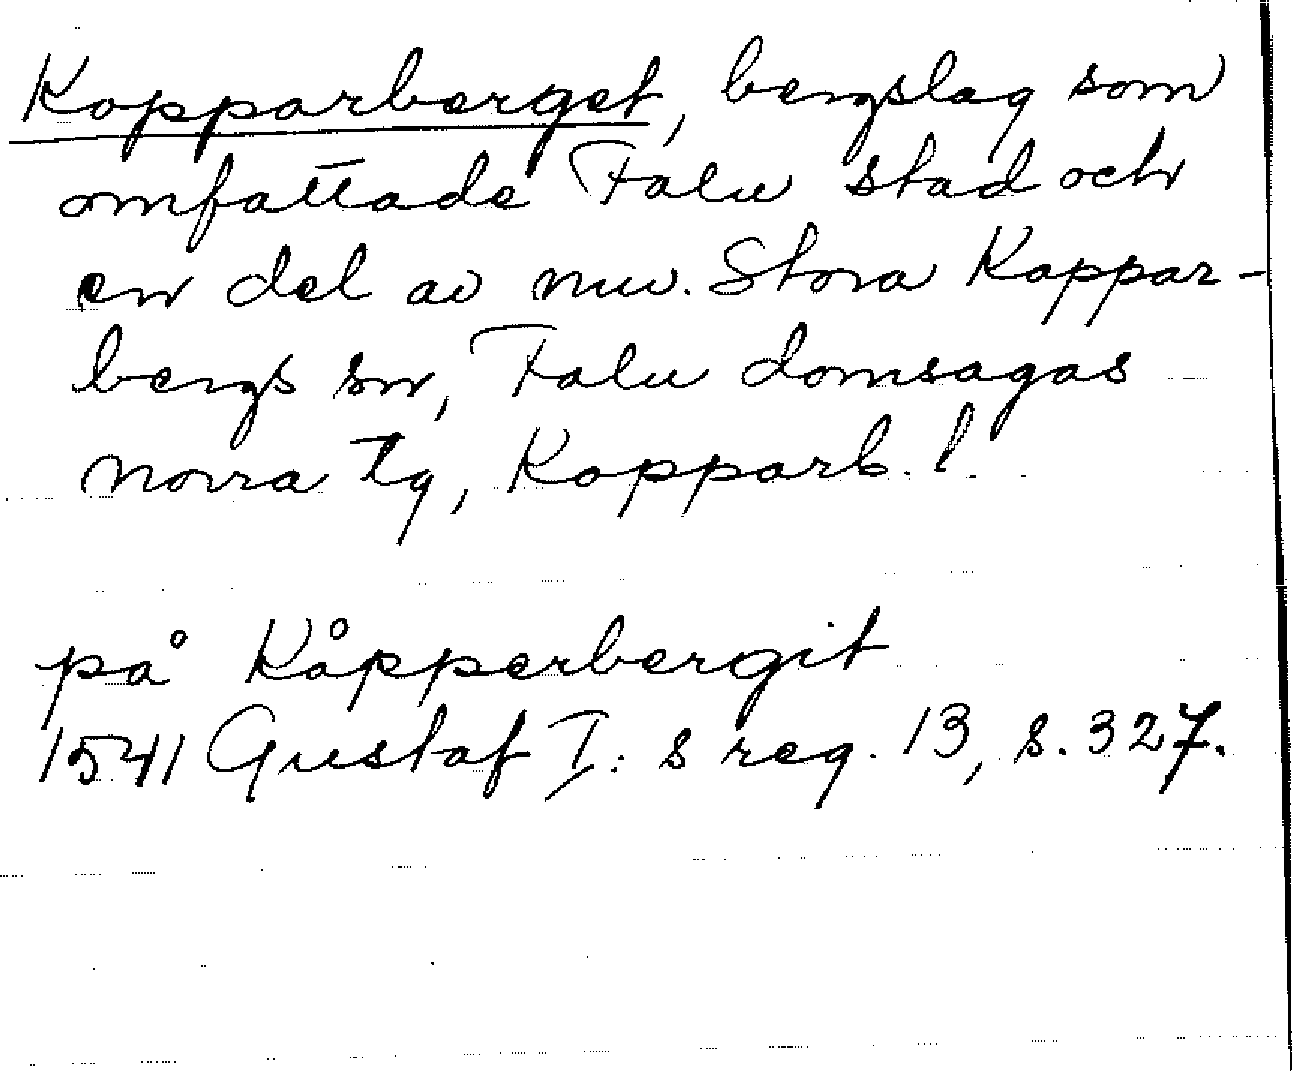 Kopparberget, bergslag som
omfattade Falu stad och
en del av nuv. Stora Koppar-
bergs sn, Falu domsagas
norra tg, Kopparb. l.
på Kåpperbergit
1541 Gustaf I:s reg. 13, s. 327.